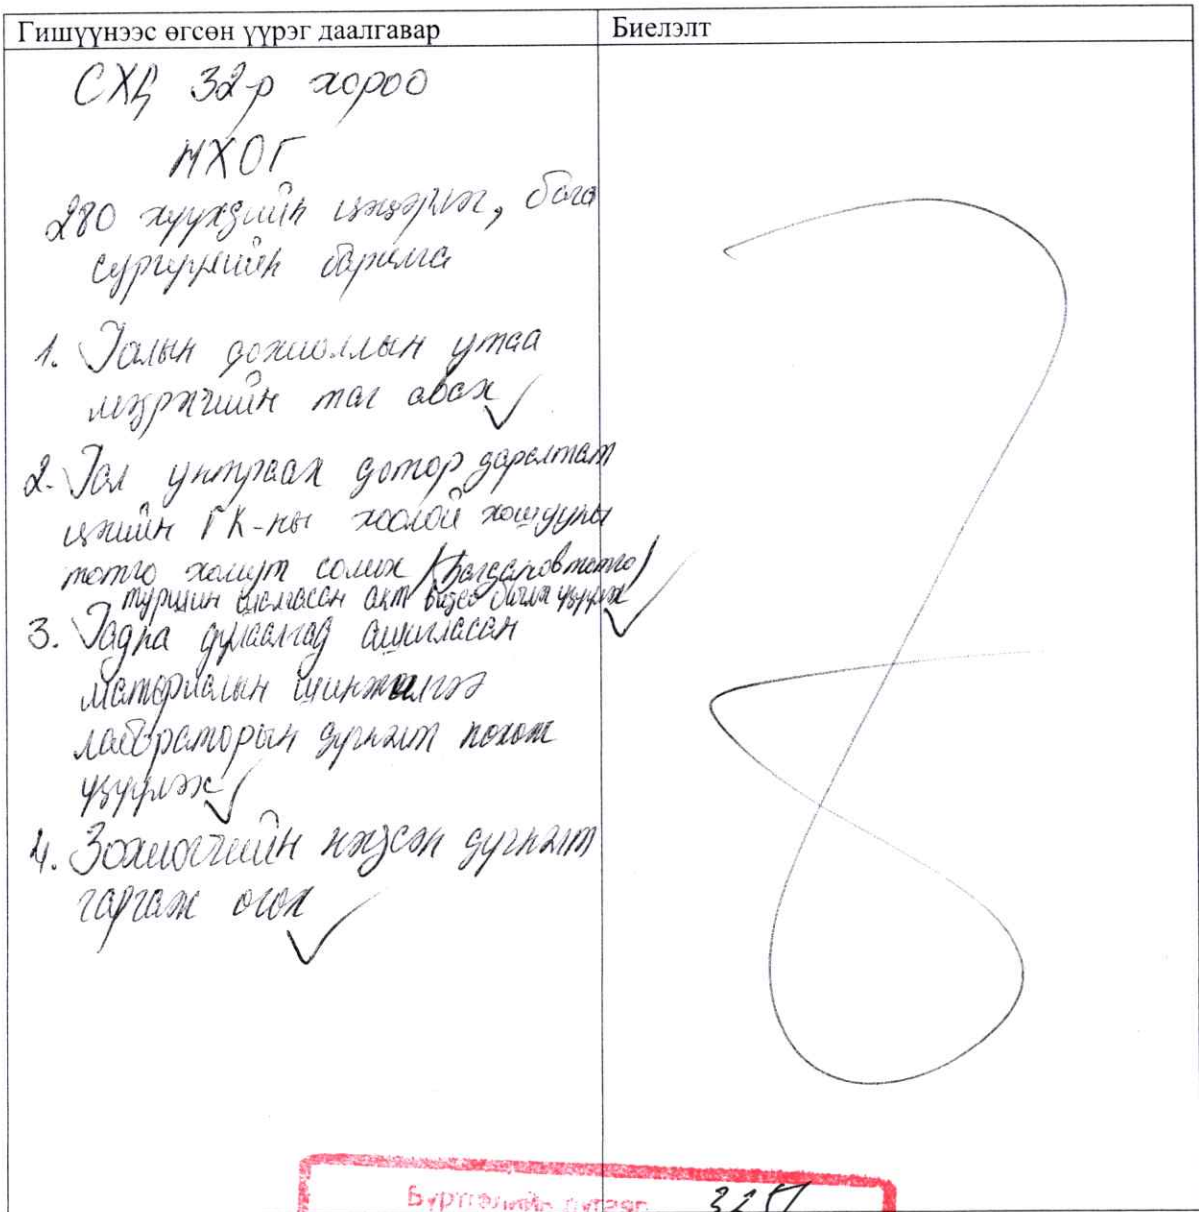 Гишүүнээс өгсөн үүрэг даалгавар
Биелэлт
СХД 32-р хороо
НХОГ
280 хүүхдийн цэцэрлэг, бага
сургуулийн барилга
1. Галын дохиоллын утаа
мэдрэгчийн таг авах
2. Гал унтраах дотор даралтат
цэгийн ГК-ны хоолой хошууны
тотго хомут солих
туршин шалгасан акт видео бичлэг үзүүлэх
3. Гадна дулаалгад ашигласан
материалын шинжилгээ
лабораторын дүгнэлт нөхөж
үзүүлэх
4. Зохиогчийн нэгдсэн дүгнэлт
гаргаж өгөх
Бүртгэлийн дугаар 3217